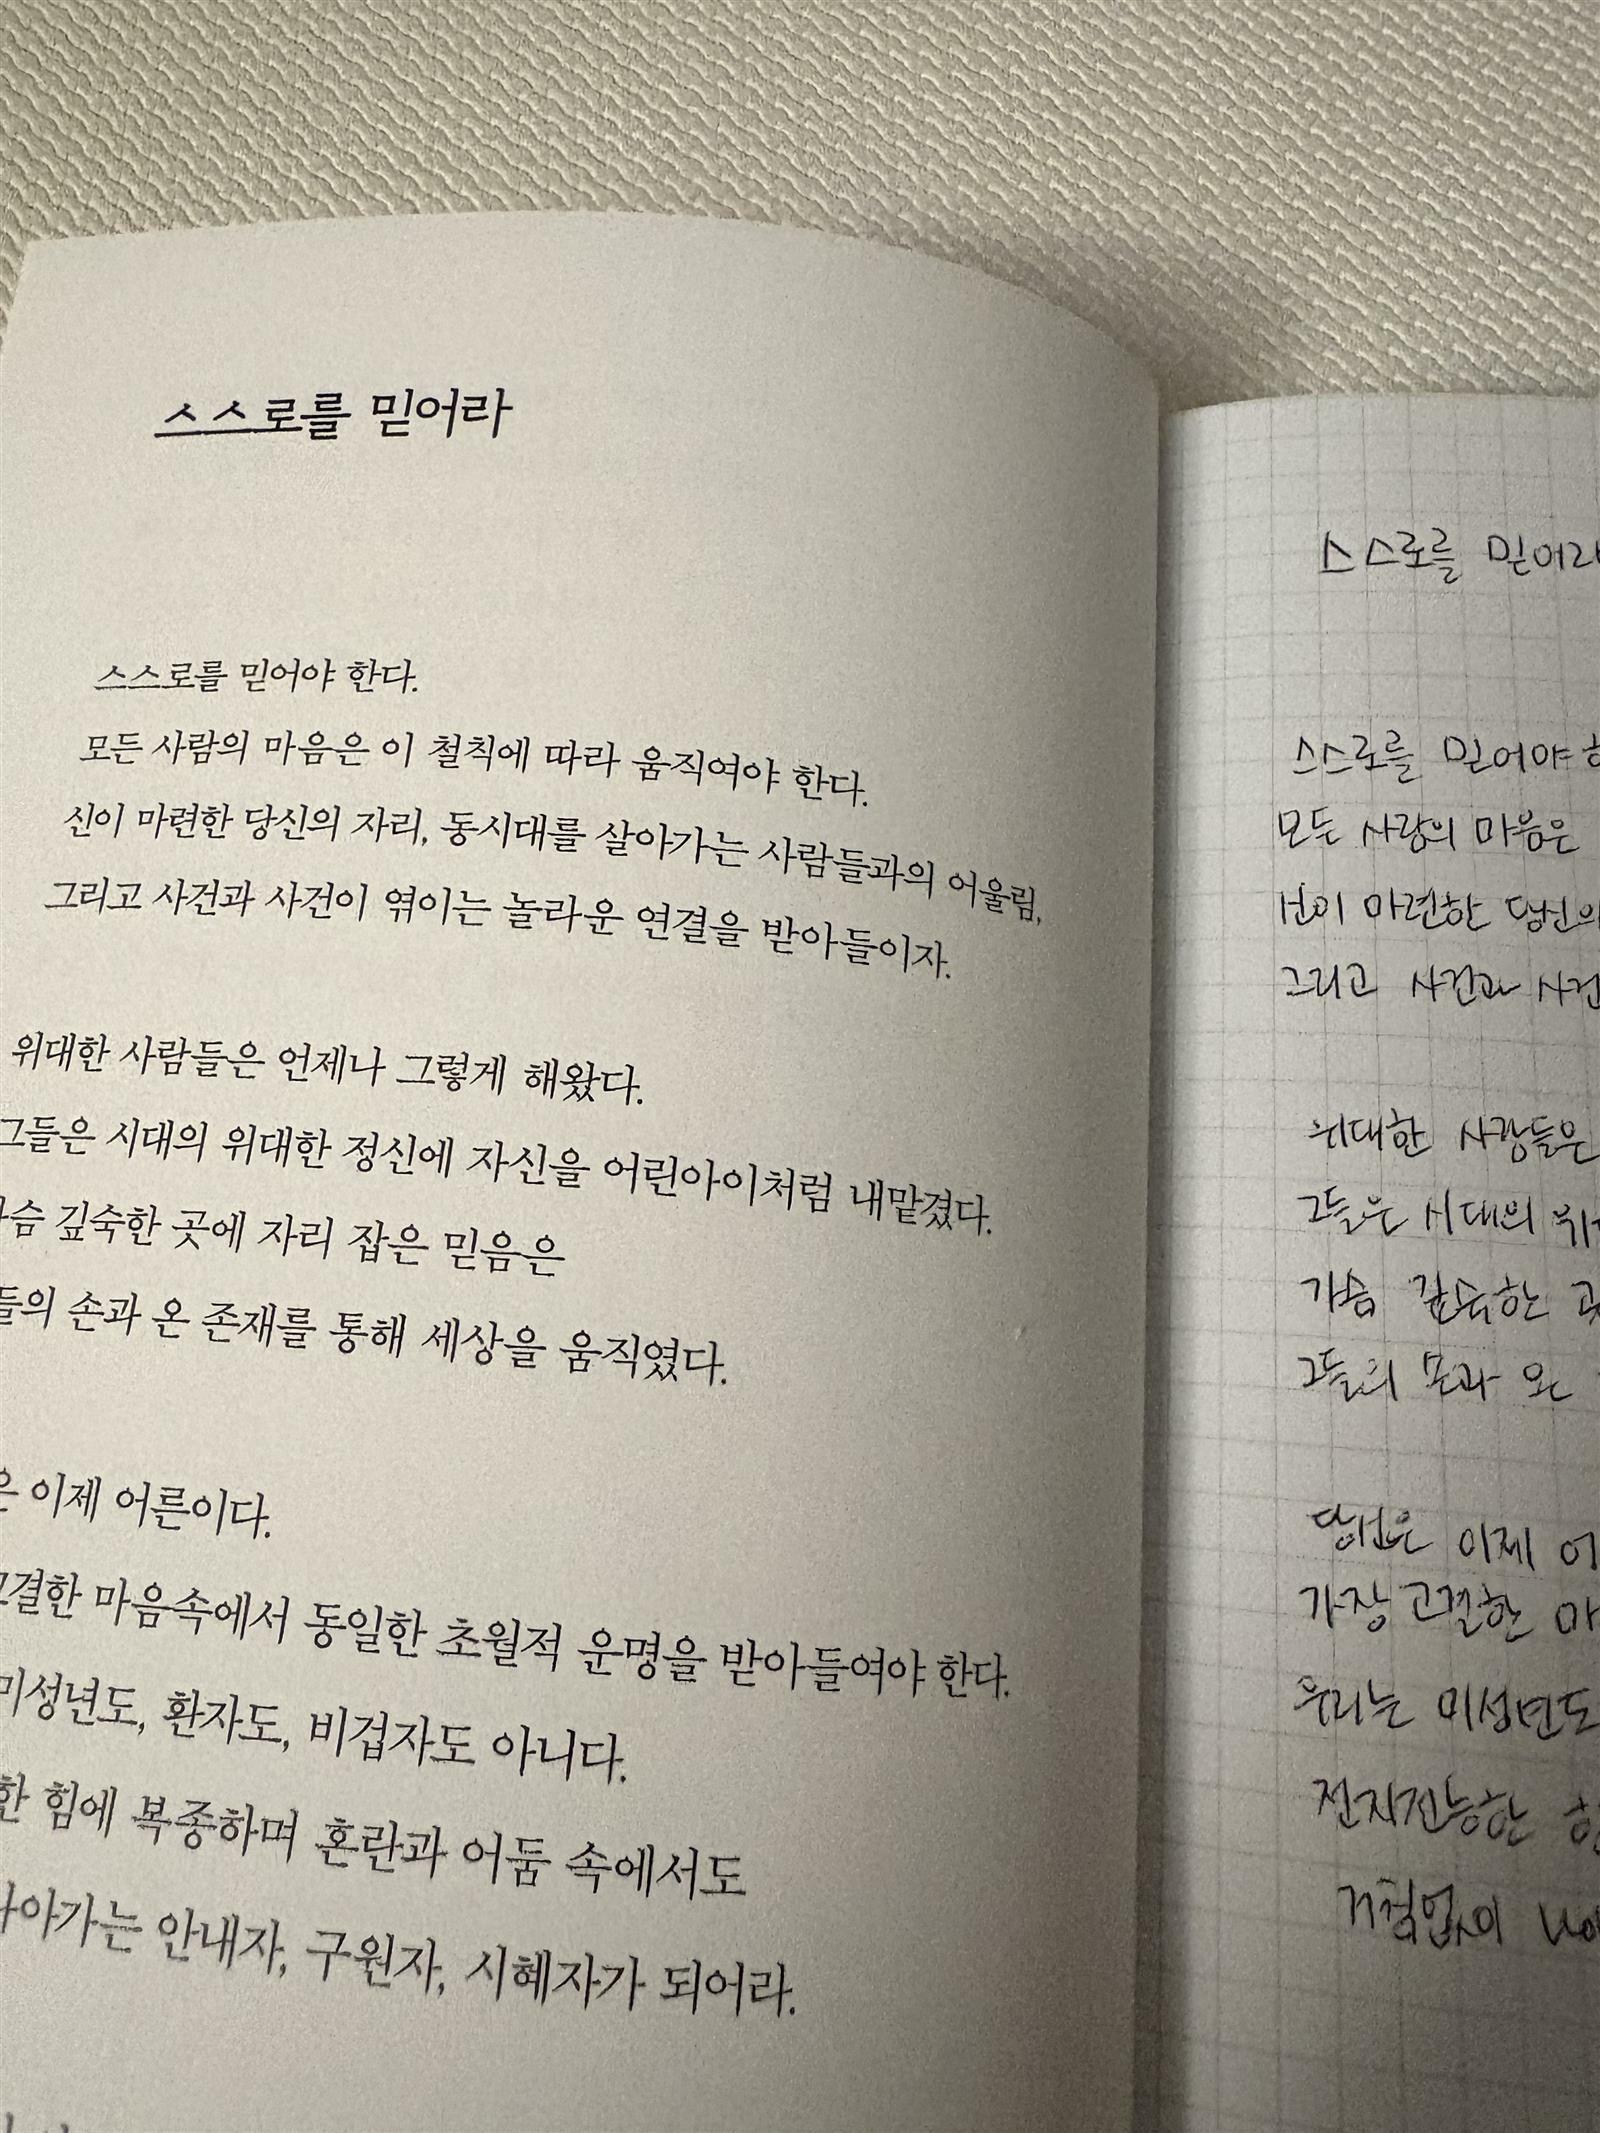 스스로를 믿어라
스스로를 믿어야 한다.
모든 사람의 마음은 이 철칙에 따라 움직여야 한다.
신이 마련한 당신의 자리, 동시대를 살아가는 사람들과의 어울림,
그리고 사건과 사건이 엮이는 놀라운 연결을 받아들이자.
위대한 사람들은 언제나 그렇게 해왔다.
그들은 시대의 위대한 정신에 자신을 어린아이처럼 내맡겼다.
깊숙한 곳에 자리 잡은 믿음은
들의 손과 온 존재를 통해 세상을 움직였다.
은 이제 어른이다.
결한 마음속에서 동일한 초월적 운명을 받아들여야 한다.
미성년도, 환자도, 비겁자도 아니다.
한 힘에 복종하며 혼란과 어둠 속에서도
아가는 안내자, 구원자, 시혜자가 되어라.
스스로를 믿어라
스스로를 믿어야
모든 사람의 마음은
신이 마련한 당신의
그리고 사건과 사건
위대한 사람들은
그들은 시대의 위
가슴 깊숙한
그들의 손과 온
당신은 이제 어
가장 고결한 마
우리는 미성년도
전지전능한
거침없이 나아